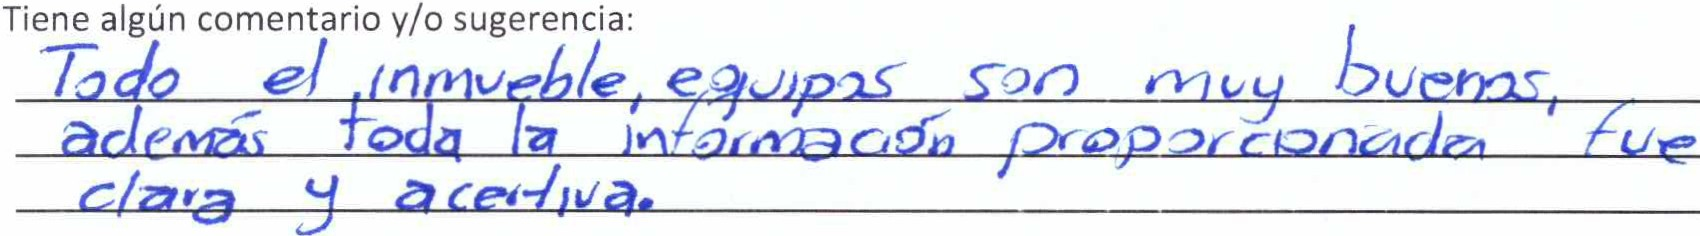 Tiene algún comentario y/o sugerencia:
Todo el inmueble, equipos son muy buenos,
además toda la información proporcionada fue
clara y acertiva.